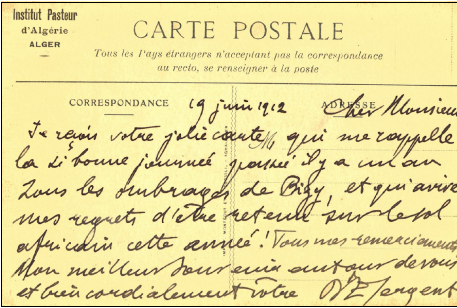 Institut Pasteur
d'Algérie
ALGER
CARTE POSTALE
Tous les Pays étrangers n'acceptant pas la correspondance
au recto, se renseigner à la poste
CORRESPONDANCE ADRESSE
19 juin 1912 Cher Monsieur
Je reçois votre jolie carte qui me rappelle
la si bonne journée passée il y a un an
sous les ombrages de Bizy, et qui avive
mes regrets d'être retenu sur le sol
africain cette année! Tous mes remerciements
Mon meilleur souvenir autour de vous
et bien cordialement vôtre Dr E Sergent